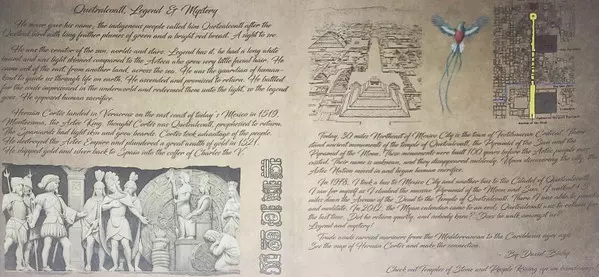 Quetzalcoatl, Legend & Mystery
He never gave his name, the indigenous people called him Quetzalcoatl after the
Quetzal bird with long feather plumes of green and a bright red breast. A sight to see.
He was the creator of the sun, worlds and stars. Legend has it, he had a long white
beard and was light skinned compared to the Aztecs who grew very little facial hair. He
came out of the east from another land, across the sea. He was the guardian of human-
kind to guide us through life on earth. He ascended and promised to return. He battled
for the souls imprisoned in the underworld and redeemed them unto the light, so the legend
goes. He opposed human sacrifice.
Hernan Cortez landed in Veracruz on the east coast of today's Mexico in 1519.
Montezuma, the Aztec King, thought Cortez was Quetzalcoatl, prophesized to return.
The Spaniards had light skin and grew beards. Cortez took advantage of the people.
He destroyed the Aztec Empire and plundered a great wealth of gold in 1521.
He shipped gold and silver back to Spain into the coffer of Charles the V.
Today, 30 miles Northeast of Mexico City is the town of Teotihuacan,
stand ancient monuments of the temple of Quetzalcoatl, the Pyramid of the Sun and the
Pyramid of the Moon. These monuments were built 700 years before the Aztec people
existed. Their name is unknown, and they disappeared suddenly. Upon discovering the city, the
Aztec Nation moved in and began human sacrifice.
In 1978, I took a bus to Mexico City and another bus to the Citadel of Quetzalcoatl.
I saw for myself as I climbed the massive Pyramid of the Moon and Sun. I walked
miles down the Avenue of the Dead to the Temple of Quetzalcoatl. There I was able to
and meditate. In 2012, the Mayan calendar came to an end. Quetzalcoatl was to return for
the last time. Did he return quietly, and nobody knew? Does he walk amongst us?
Legend and mystery!
Trade winds carried mariners from the Mediterranean to the Caribbean ages ago.
See the map of Hernan Cortez and make the connection.
- By David
Check out Temples of Stone and